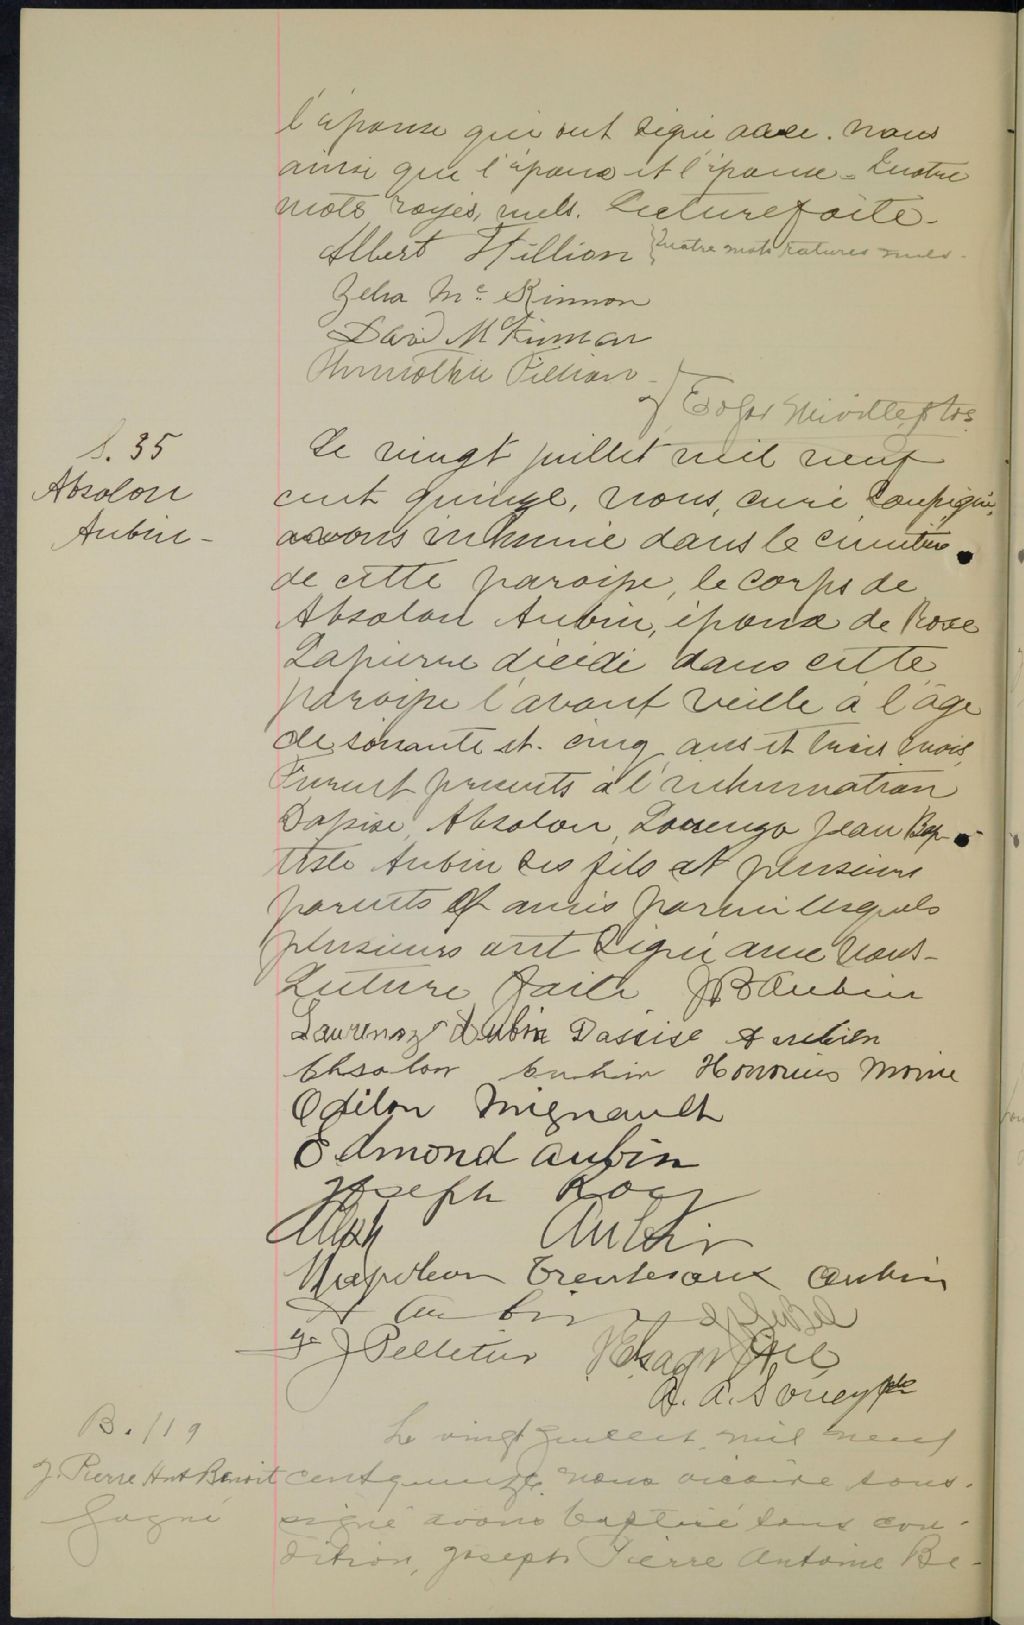 l'épouse qui ont signé avec nous
ainsi que l'époux et l'épouse - Quatre
mots rayés, nuls. Lecture faite -
Albert Fillion Quatre mots raturés nuls -
Zelia Mc Kinnon
David McKinnon
Fillion
Edgar Miville ptre
S. 35
Absolon
Aubin -
Le vingt juillet mil neuf
cent quinze, nous, curé soussigné,
avons inhumé dans le cimetière
de cette paroisse, le corps de
Absolon Aubin, époux de Rose
Lapierre décédé dans cette
paroisse l'avant veille à l'âge
de soixante et cinq ans et trois mois,
Furent présents à l'inhumation
Dassise, Absolon, Laurenzo Jean Bap-
tiste Aubin ses fils et plusieurs
parents et amis parmi lesquels
plusieurs ont signé avec nous -
Lecture faite JB Aubin
Laurenzo Aubin Dassise Aubin
Absolon Aubin Honorius Morin
Odilon Mignault
Edmond Aubin
Joseph Roy
Aubin
Napoleon Aubin
Aubin
J Pelletier
A. A. Soucy ptre
B. 119
J. Pierre Ant Benoit
Gagné
Le vingt juillet mil neuf
cent quinze, nous vicaire sous-
signé avons baptisé sous con-
dition, Joseph Pierre Antoine Be-